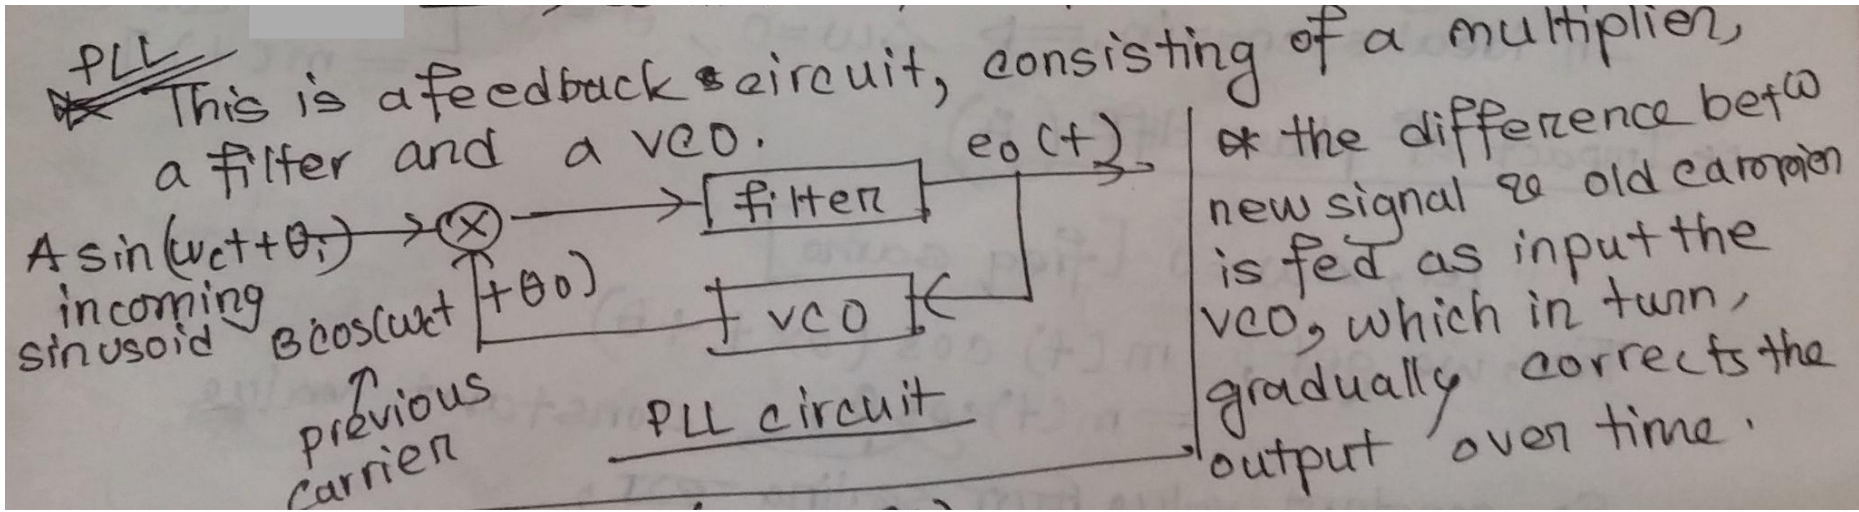 PLL
This is a feedback circuit, consisting of a multiplier,
a filter and a VCO.
e₀(t)
filter
A sin(ωct+θi)
X
incoming
sinusoid
B cos(ωct+θ0)
VCO
previous
carrier
PLL circuit
* the difference betw
new signal & old carrier
is fed as input the
VCO, which in turn,
gradually corrects the
output over time.